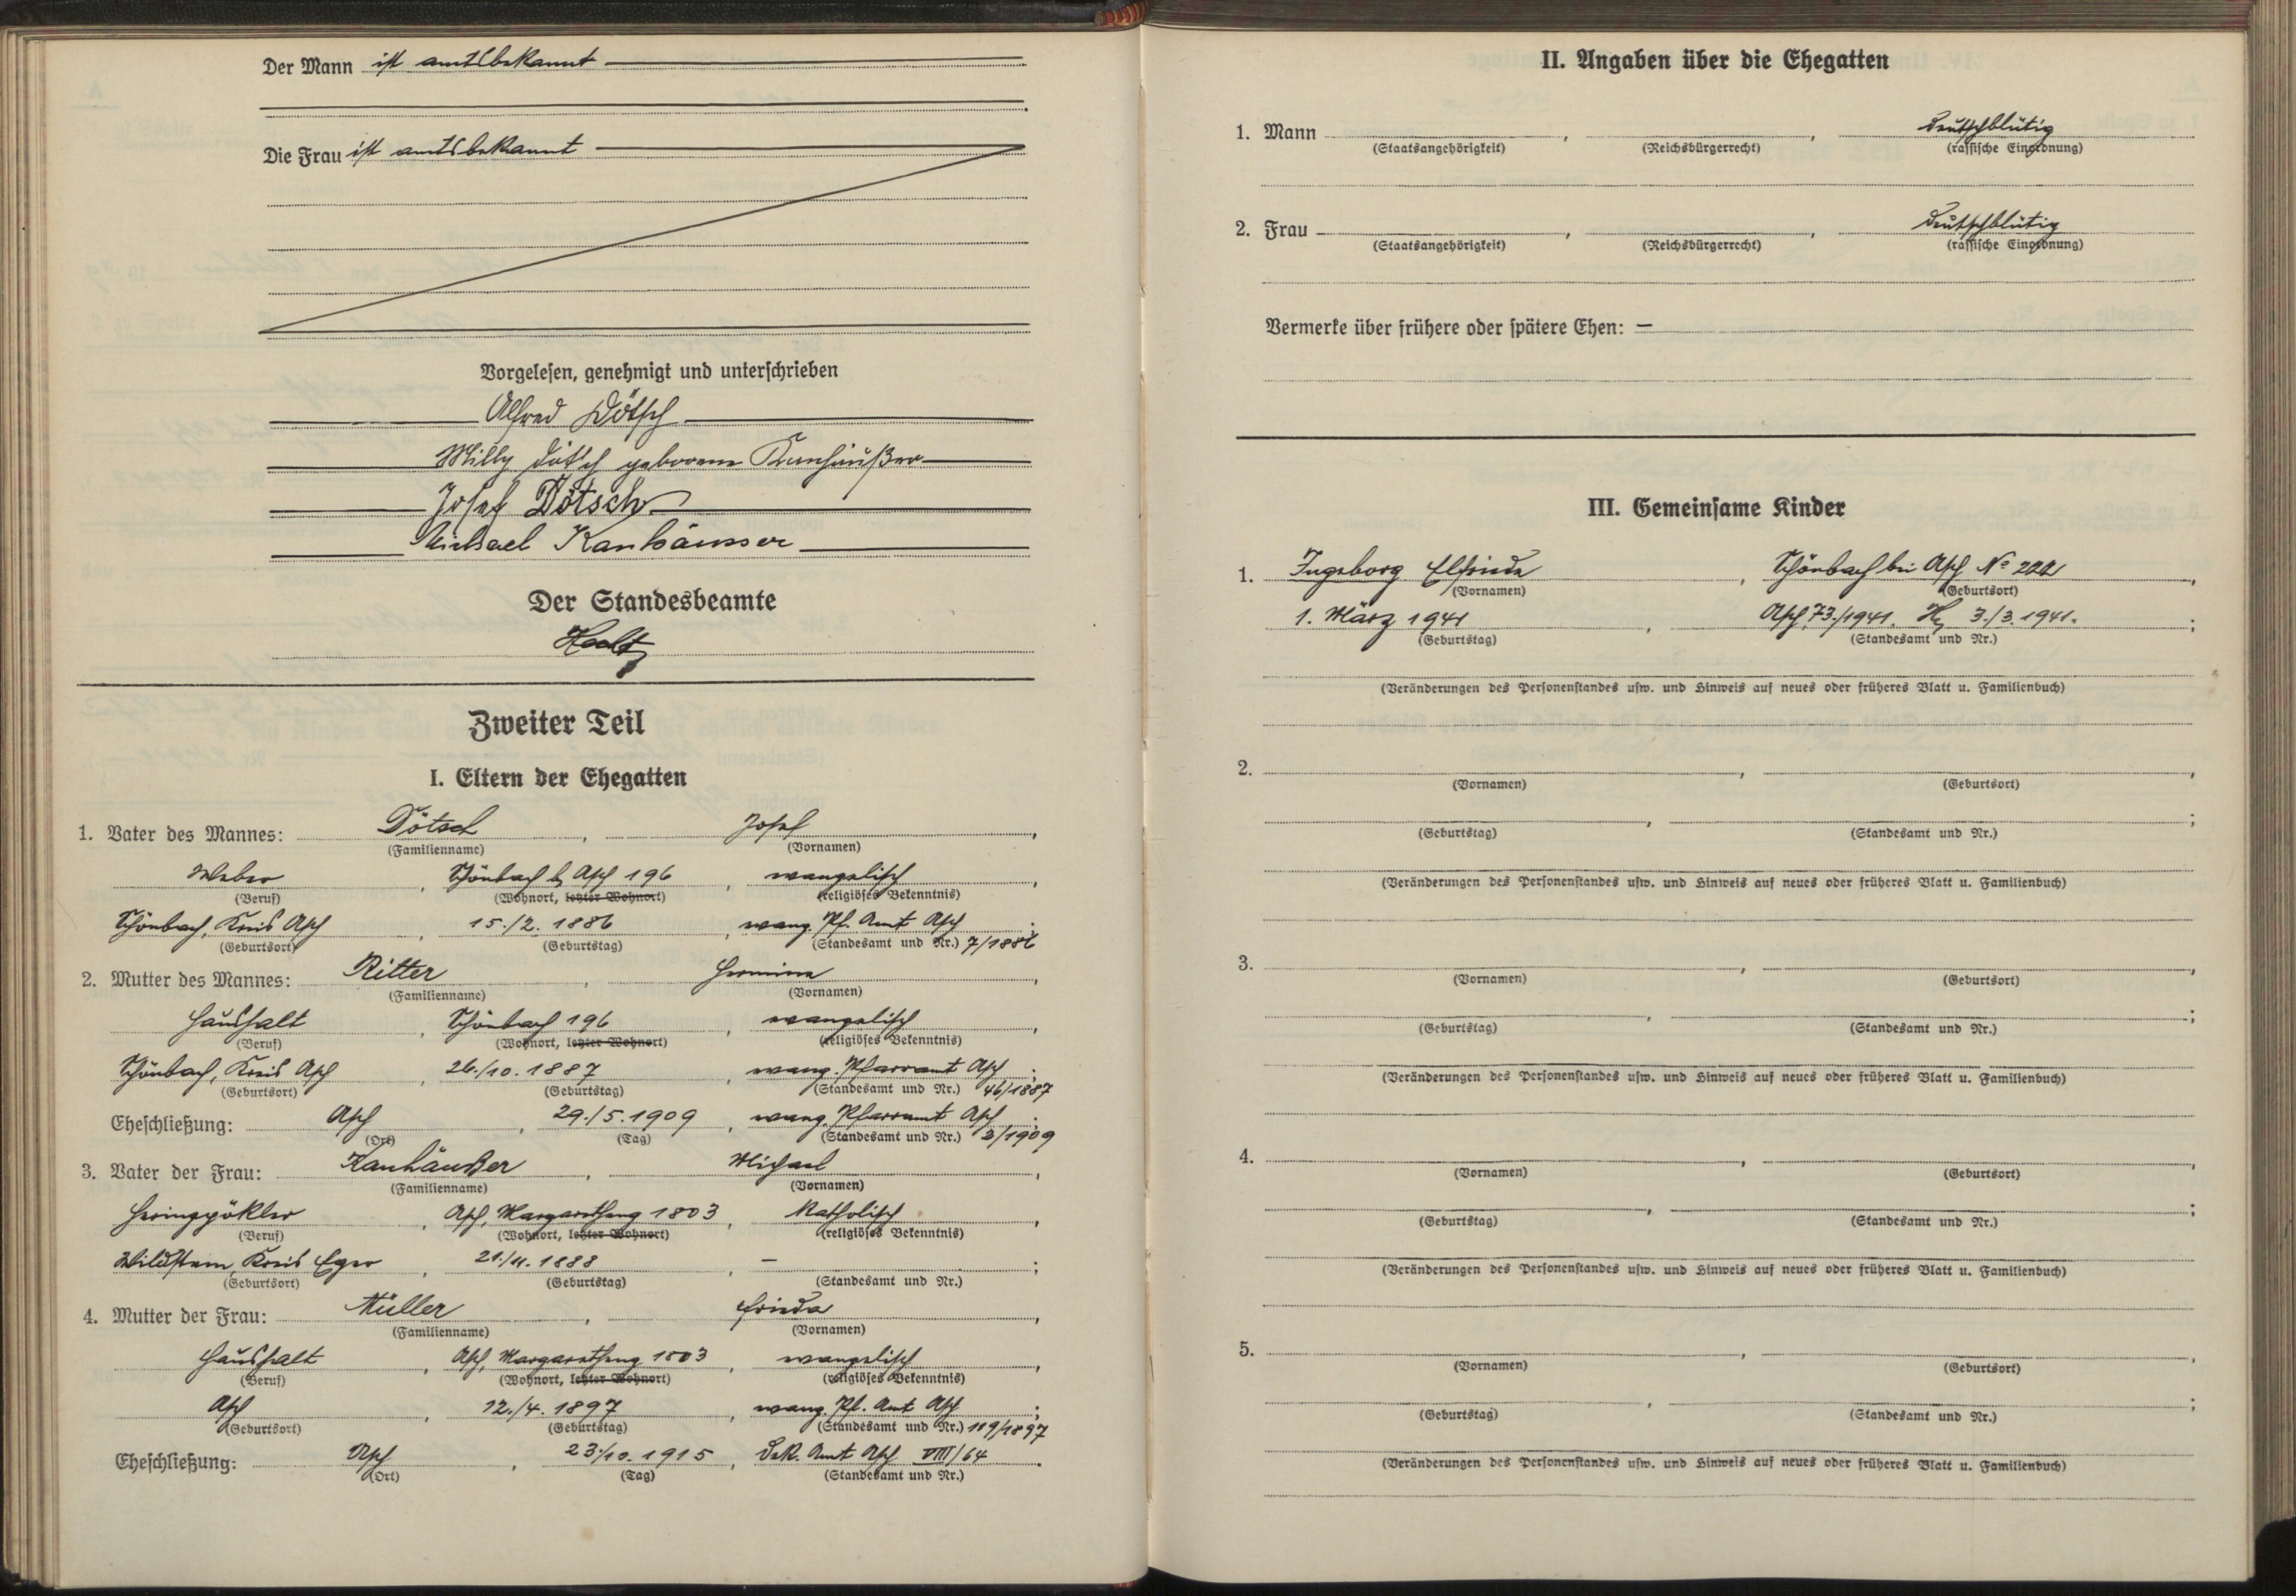 Der Mann ist amtsbekannt
Die Frau ist amtsbekannt
Vorgelesen, genehmigt und unterschrieben
Alfred Dötsch
Milly Dötsch geborene Kanhäußer
Josef Dötsch
Michael Kanhäusser
Der Standesbeamte
Zweiter Teil
I. Eltern der Ehegatten
1. Vater des Mannes: Dötsch, Josef,
(Familienname) (Vornamen)
Weber, Schönbach b. Asch 196, evangelisch,
(Beruf) (Wohnort, letzter Wohnort) (religiöses Bekenntnis)
Schönbach, Kreis Asch, 15./2. 1886, evang. Pf. Amt Asch;
(Geburtsort) (Geburtstag) (Standesamt und Nr.) 7/1886
2. Mutter des Mannes: Ritter, Hermine,
(Familienname) (Vornamen)
Haushalt, Schönbach 196, evangelisch,
(Beruf) (Wohnort, letzter Wohnort) (religiöses Bekenntnis)
Schönbach, Kreis Asch, 26./10. 1887, evang. Pfarramt Asch;
(Geburtsort) (Geburtstag) (Standesamt und Nr.) 46/1887
Eheschließung: Asch, 29./5. 1909, evang. Pfarramt Asch.
(Ort) (Tag) (Standesamt und Nr.) 2/1909
3. Vater der Frau: Kanhäußer, Michael,
(Familienname) (Vornamen)
Asch, Margaretheng 1803, katholisch,
(Beruf) (Wohnort, letzter Wohnort) (religiöses Bekenntnis)
Wildstein, Kreis Eger, 21./11. 1888, –;
(Geburtsort) (Geburtstag) (Standesamt und Nr.)
4. Mutter der Frau: Müller, Frieda,
(Familienname) (Vornamen)
Haushalt, Asch, Margaretheng 1803, evangelisch,
(Beruf) (Wohnort, letzter Wohnort) (religiöses Bekenntnis)
Asch, 12./4. 1897, evang. Pf. Amt Asch;
(Geburtsort) (Geburtstag) (Standesamt und Nr.) 119/1897
Eheschließung: Asch, 23./10. 1915, Dek. Amt Asch VIII/64.
(Ort) (Tag) (Standesamt und Nr.)
II. Angaben über die Ehegatten
1. Mann , , deutschblütig
(Staatsangehörigkeit) (Reichsbürgerrecht) (rassische Einordnung)
2. Frau – , , deutschblütig
(Staatsangehörigkeit) (Reichsbürgerrecht) (rassische Einordnung)
Vermerke über frühere oder spätere Ehen: –
III. Gemeinsame Kinder
1. Ingeborg Elfriede, Schönbach bei Asch No 222,
(Vornamen) (Geburtsort)
1. März 1941, Asch 73/1941. 3./3. 1941.;
(Geburtstag) (Standesamt und Nr.)
(Veränderungen des Personenstandes usw. und Hinweis auf neues oder früheres Blatt u. Familienbuch)
2. , ,
(Vornamen) (Geburtsort)
, ;
(Geburtstag) (Standesamt und Nr.)
(Veränderungen des Personenstandes usw. und Hinweis auf neues oder früheres Blatt u. Familienbuch)
3. , ,
(Vornamen) (Geburtsort)
, ;
(Geburtstag) (Standesamt und Nr.)
(Veränderungen des Personenstandes usw. und Hinweis auf neues oder früheres Blatt u. Familienbuch)
4. , ,
(Vornamen) (Geburtsort)
, ;
(Geburtstag) (Standesamt und Nr.)
(Veränderungen des Personenstandes usw. und Hinweis auf neues oder früheres Blatt u. Familienbuch)
5. , ,
(Vornamen) (Geburtsort)
, ;
(Geburtstag) (Standesamt und Nr.)
(Veränderungen des Personenstandes usw. und Hinweis auf neues oder früheres Blatt u. Familienbuch)